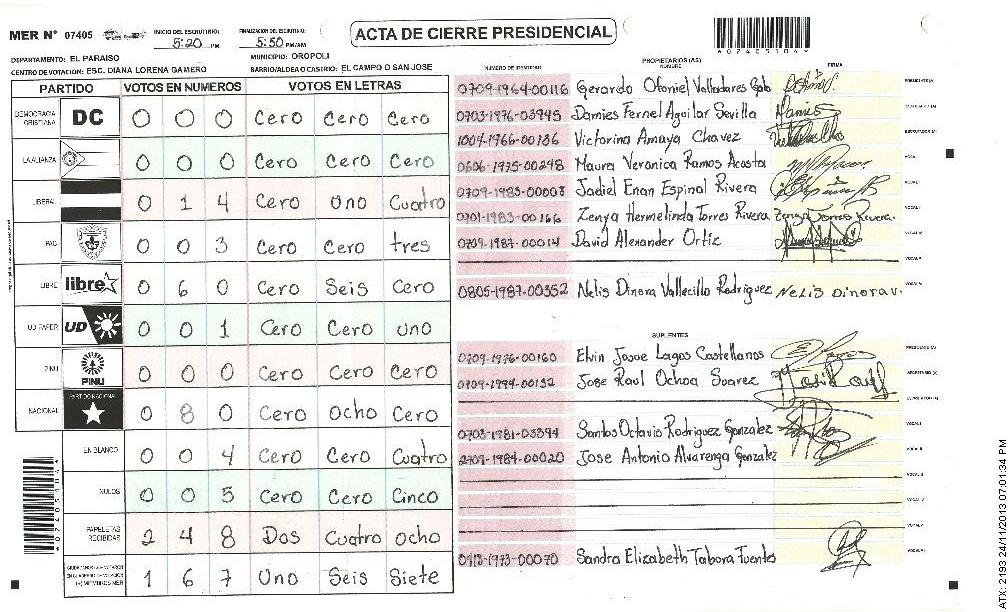 MER N° 07405
INICIO DEL ESCRUTINIO: 5:20 PM
FINALIZACION DEL ESCRUTINIO: 5:50 PM/AM
ACTA DE CIERRE PRESIDENCIAL
DEPARTAMENTO: EL PARAISO
MUNICIPIO: OROPOLI
CENTRO DE VOTACION: ESC. DIANA LORENA GAMERO
BARRIO/ALDEA O CASERIO: EL CAMPO O SAN JOSE
PARTIDO VOTOS EN NUMEROS VOTOS EN LETRAS
DEMOCRACIA CRISTIANA DC 0 0 0 Cero Cero Cero
LA ALIANZA 0 0 0 Cero Cero Cero
LIBERAL 0 1 4 Cero Uno Cuatro
PAC 0 0 3 Cero Cero tres
LIBRE libre 0 6 0 Cero Seis Cero
UD FAPER UD 0 0 1 Cero Cero uno
PINU PINU 0 0 0 Cero Cero Cero
NACIONAL PARTIDO NACIONAL 0 8 0 Cero Ocho Cero
EN BLANCO 0 0 4 Cero Cero Cuatro
NULOS 0 0 5 Cero Cero Cinco
PAPELETAS RECIBIDAS 2 4 8 Dos Cuatro ocho
1 6 7 Uno Seis Siete
PROPIETARIOS (AS)
NUMERO DE IDENTIDAD NOMBRE FIRMA
0709-1964-00116 Gerardo Otoniel Valladares
0703-1976-03945 Damies Fernel Aguilar Sevilla Damies
1009-1966-00136 Victorina Amaya Chavez
0606-1975-00248 Maura Veronica Ramos Acosta
0709-1983-00003 Jadiel Enan Espinal Rivera
0701-1983-00166 Zenya Hermelinda Torres Rivera Zenya Torres Rivera.
0709-1987-00014 David Alexander Ortiz
0805-1987-00352 Nelis Dinora Vallecillo Rodriguez Nelis Dinora V.
SUPLENTES
0709-1976-00160 Elvin Josue Lagos Castellanos
0709-1994-00132 Jose Raul Ochoa Suarez
0703-1981-03394 Santos Octavio Rodriguez Gonzalez
2709-1984-00020 Jose Antonio Alvarenga Gonzalez
0713-1973-00070 Sandra Elizabeth Tabora Fuentes
ATX: 2193 24/11/2013 07:01:34 PM